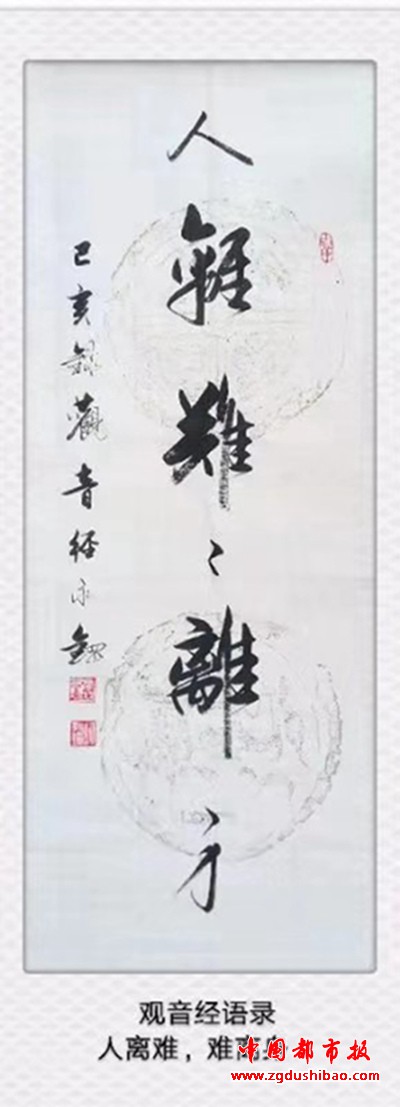 人離難〻離身
己亥錄觀音经永
观音经语录
人离难，难离身
中国都市报
www.zgdushibao.com